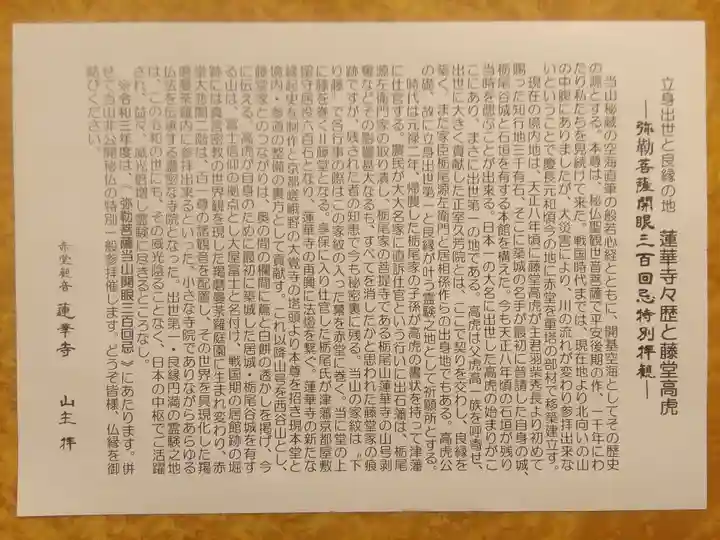 立身出世と良縁の地 蓮華寺々歴と藤堂高虎
―弥勒菩薩開眼三百回忌特別拝観―
当山秘蔵の空海直筆の般若心経とともに、開基空海としてその歴史
の源とする。本尊は、秘仏聖観世音菩薩で平安後期の作、一千年にわ
たり私たちを見続けて来た。戦国時代までは、現在地より北向いの山
の中腹にありましたが、大災害により、川の流れが変わり参拝出来な
いということで慶長元和頃今の地に赤堂を重塔の部材で移築建立す。
現在の境内地は、天正八年頃に藤堂高虎が主君羽柴秀長より初めて
賜った知行地三千有石、そこに築城の名手が最初に普請した自身の城、
栃尾谷城と石垣を有する本館を構えた。今も天正八年頃の石垣が残り
当時を偲ぶことが出来る。日本一の大名に出世した高虎の始まりがこ
こにあり、まさに出世第一の地である。高虎は父虎高一族を呼寄せ、
出世に大きく貢献した正室久芳院とは、ここで契りを交わし、良縁を
築く。また家臣栃尾源左衛門と居相孫作らの出身地でもある。高虎公
の礎、故に立身出世第一と良縁が叶う霊験之地として祈願所とする。
時代は元禄二年、帰農した栃尾家の子孫が高虎の書状を持って津藩
に仕官する。農民が大大名家に直訴仕官という行いに出石藩は、栃尾
源左衛門家の取り潰し、栃尾家の菩提寺である栃尾山蓮華寺の山号剥
奪などその影響甚大なるも、すべてを消したかと思われた藤堂家の痕
跡ですが、残された者の知恵で今も秘密裏に残る。当山の家紋は〝下
り藤〟で各行事の際はこの家紋の入った幕を赤堂に巻く。当に堂の上
に藤を巻く=藤堂となる。享保に入り仕官した栃尾氏が津藩京都屋敷
留守居役六百石となり、蓮華寺の再興に法燈を繋ぐ。蓮華寺の新たな
縁起史を制作と京都嵯峨野の大覚寺の塔頭より本尊を招き現本堂と
境内・参道の整備の裏方として貢献す。これ以降山号を西谷山とし、
藤堂家とのつながりは、奥の間の欄間に蔦と白餅の透かしを掲げ、今
に伝える。高虎が自身のために最初に築城した居城・栃尾谷城を有す
る山は、富士信仰の拠点として大屋富士と名付け、戦国期の居館跡の堀
跡には真言密教の世界観を現した羯磨曼荼羅庭園に生まれ変わり、赤
堂大悲閣二階は、百一尊の諸観音を配置し、その世界を具現化した羯
磨曼荼羅内に参拝出来るといった、小さな寺院でありながらあらゆる
仏法を伝承する厳密な寺院となった。出世第一・良縁円満の霊験之地
は、この令和の世にも、その威光陰ることなく、日本の中枢でご活躍
され、益々、威光倍増し霊験に尽きるところなし。
※令和三年度は、《弥勒菩薩当山開眼三百回忌》にあたります。併
せて当山非公開秘仏の特別一般参拝催します。どうぞ皆様、仏縁を御
結びください。
赤堂観音 蓮華寺 山主 拝